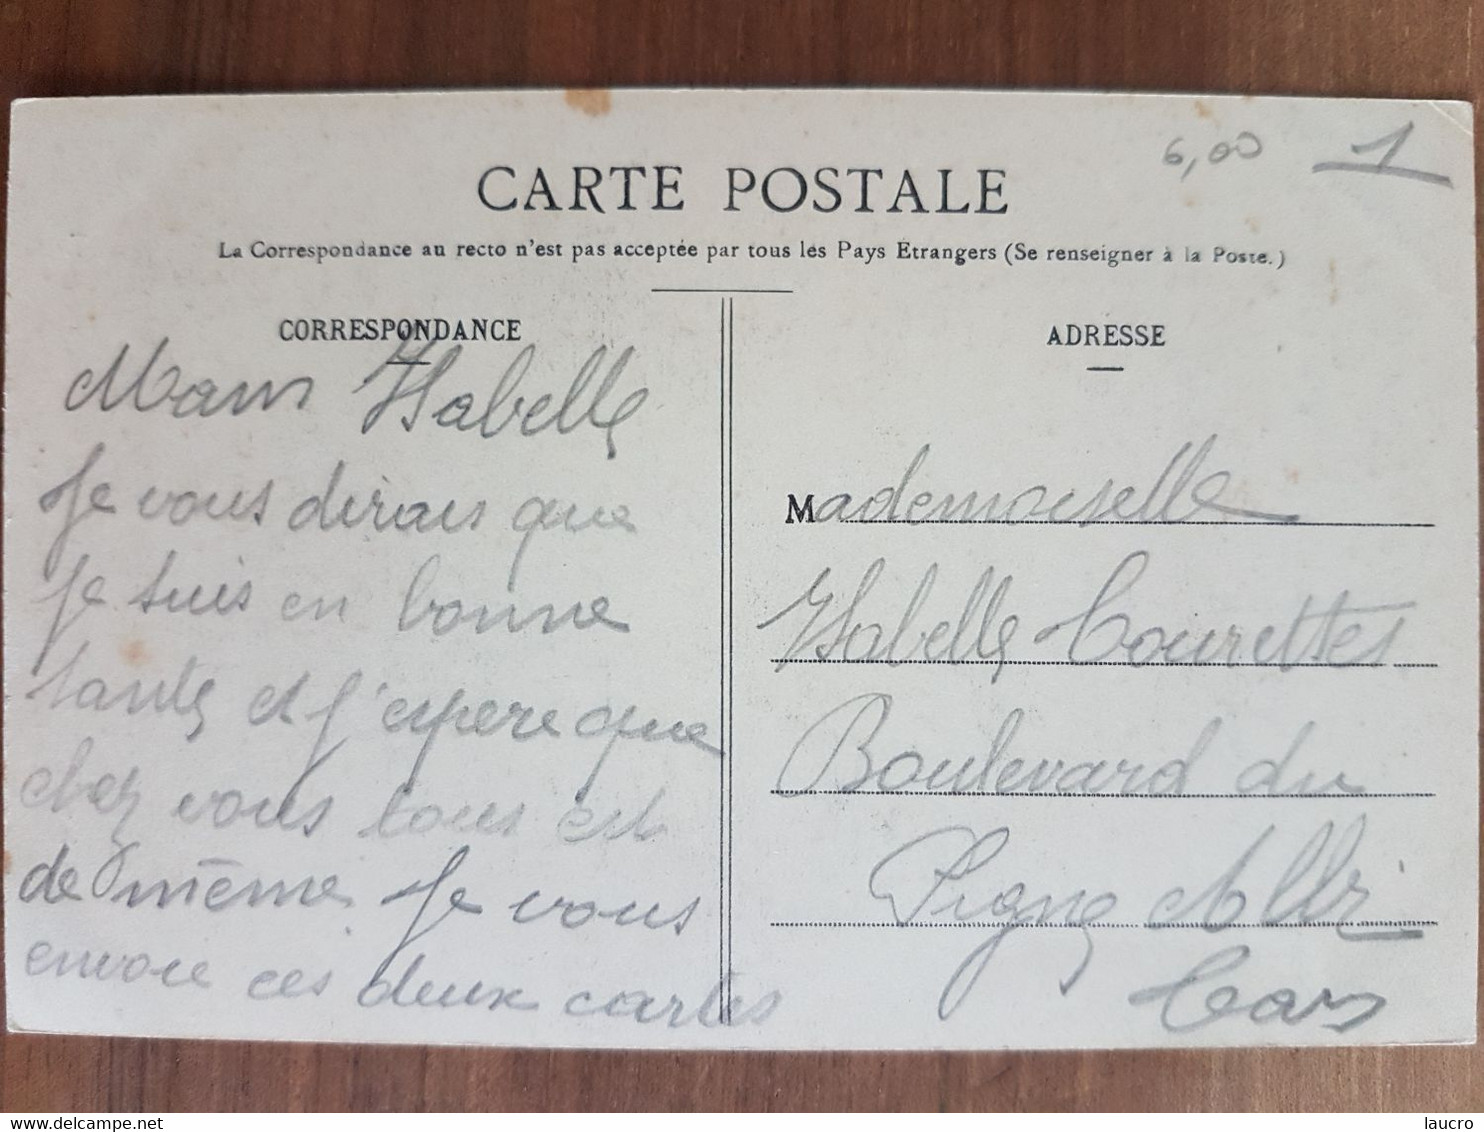 6,00 1
CARTE POSTALE
La Correspondance au recto n'est pas acceptée par tous les Pays Étrangers (Se renseigner à la Poste.)
CORRESPONDANCE
Isabelle
Je vous dirais que
je suis en bonne
sante et j'espere que
chez vous tous est
de même Je vous
envoie ces deux cartes
ADRESSE
Mademoiselle
Isabelle Tourettes
Boulevard du
Pigné Albi
Tarn
delcampe.net
laucro